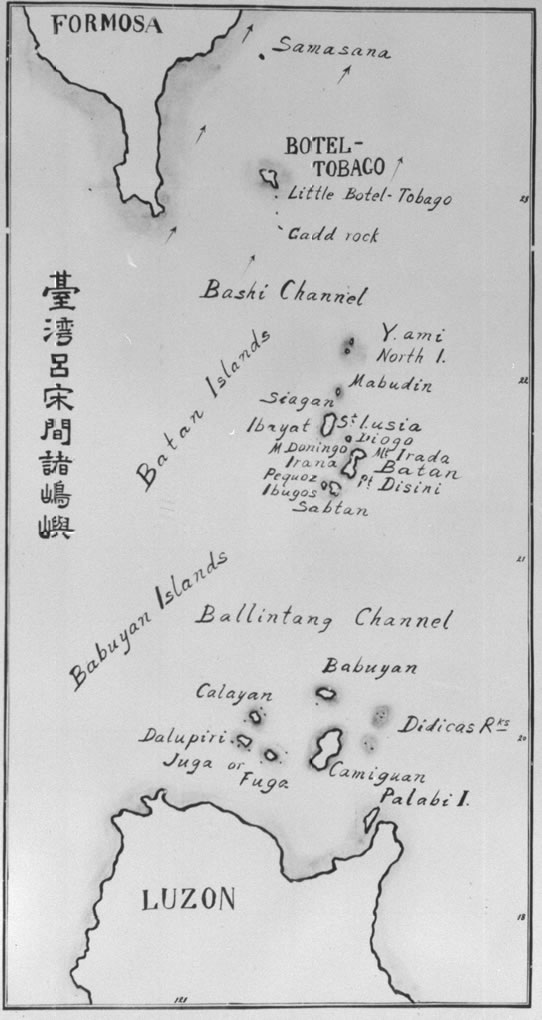 FORMOSA
Samasana
BOTEL-
TOBAGO
Little Botel-Tobago
Gadd rock
23
Bashi Channel
臺灣呂宋間諸嶋嶼
Batan Islands
Y.ami
North I.
22
Mabudin
Siagan
Ibayat
St Lusia
Diogo
M. Domingo
Mt Irada
Irana
Batan
Pequoz
Pt Disini
Ibugos
Sabtan
21
Babuyan Islands
Ballintang Channel
Babuyan
Calayan
Didicas Rks
20
Dalupiri
Juga or
Fuga
Camiguan
Palabi I.
LUZON
18
121